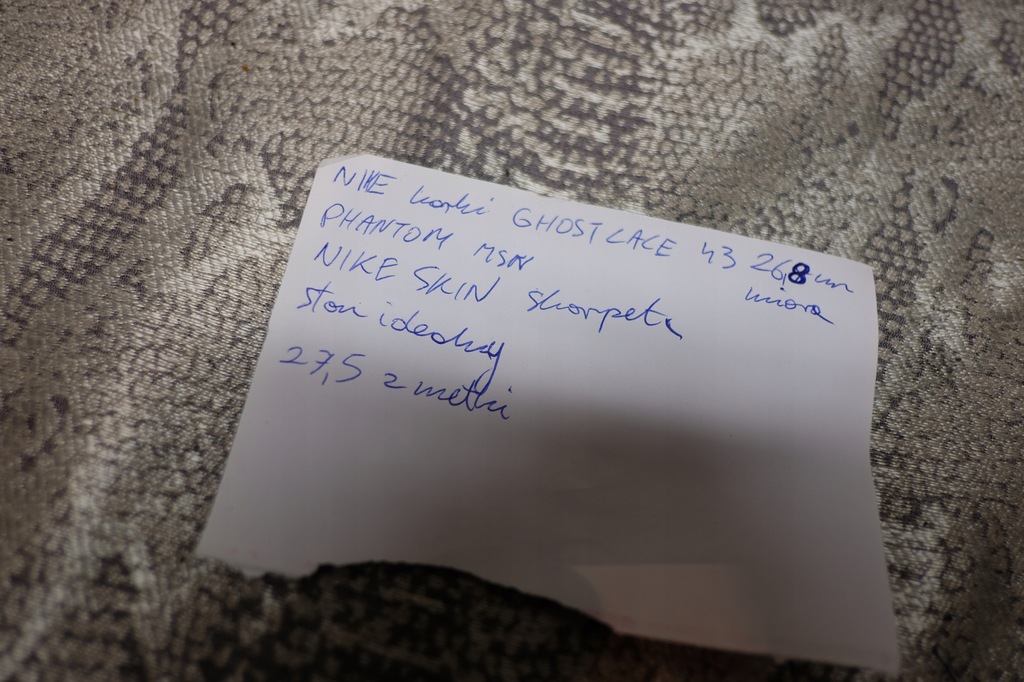 NIKE korki GHOSTLACE 43 26,8 cm
miara
PHANTOM MSN
NIKE SKIN skarpeta
stan idealny
27,5 z metki